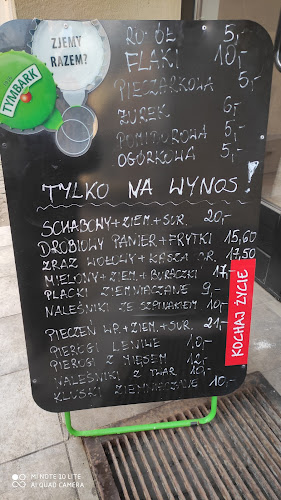 ZJEMY
RAZEM?
TYMBARK
ROSÓŁ 5,-
FLAKI 10,-
PIECZARKOWA 5,-
ŻUREK 6,-
POMIDOROWA 5,-
OGÓRKOWA 5,-
TYLKO NA WYNOS!
SCHABOWY+ZIEM.+SUR. 20,-
DROBIOWY PANIER+FRYTKI 15,60
ZRAZ WOŁOWY+KASZA GR. 17,50
MIELONY+ZIEM.+BURACZKI 17,-
PLACKI ZIEMNIACZANE 9,-
NALEŚNIKI ZE SZPINAKIEM 10,-
PIECZEŃ WP.+ZIEM.+SUR. 21,-
PIEROGI LENIWE 10,-
PIEROGI Z MIĘSEM 12,-
NALEŚNIKI Z TWAR 10,-
KLUSKI ZIEMNIACZANE 10,-
KOCHAJ ŻYCIE
MI NOTE 10 LITE
AI QUAD CAMERA